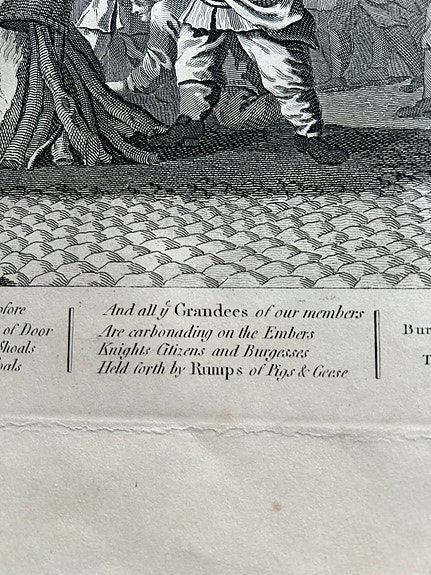 efore
of Door
Shoals
oals
And all yͤ Grandees of our members
Are carbonading on the Embers
Knights Citizens and Burgesses
Held forth by Rumps of Pigs & Geese
Bur
T